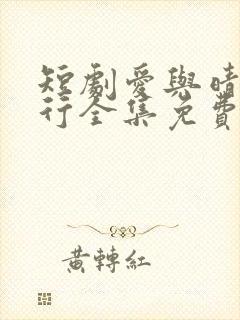 短劇愛與晴
行全集免費
黃轉紅